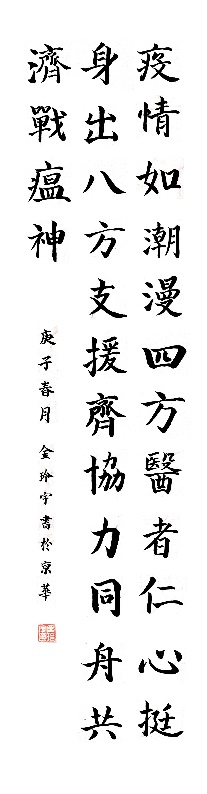 疫情如潮漫四方醫者仁心挺
身出八方支援齊協力同舟共
濟戰瘟神
庚子春月金玲宇書於京華